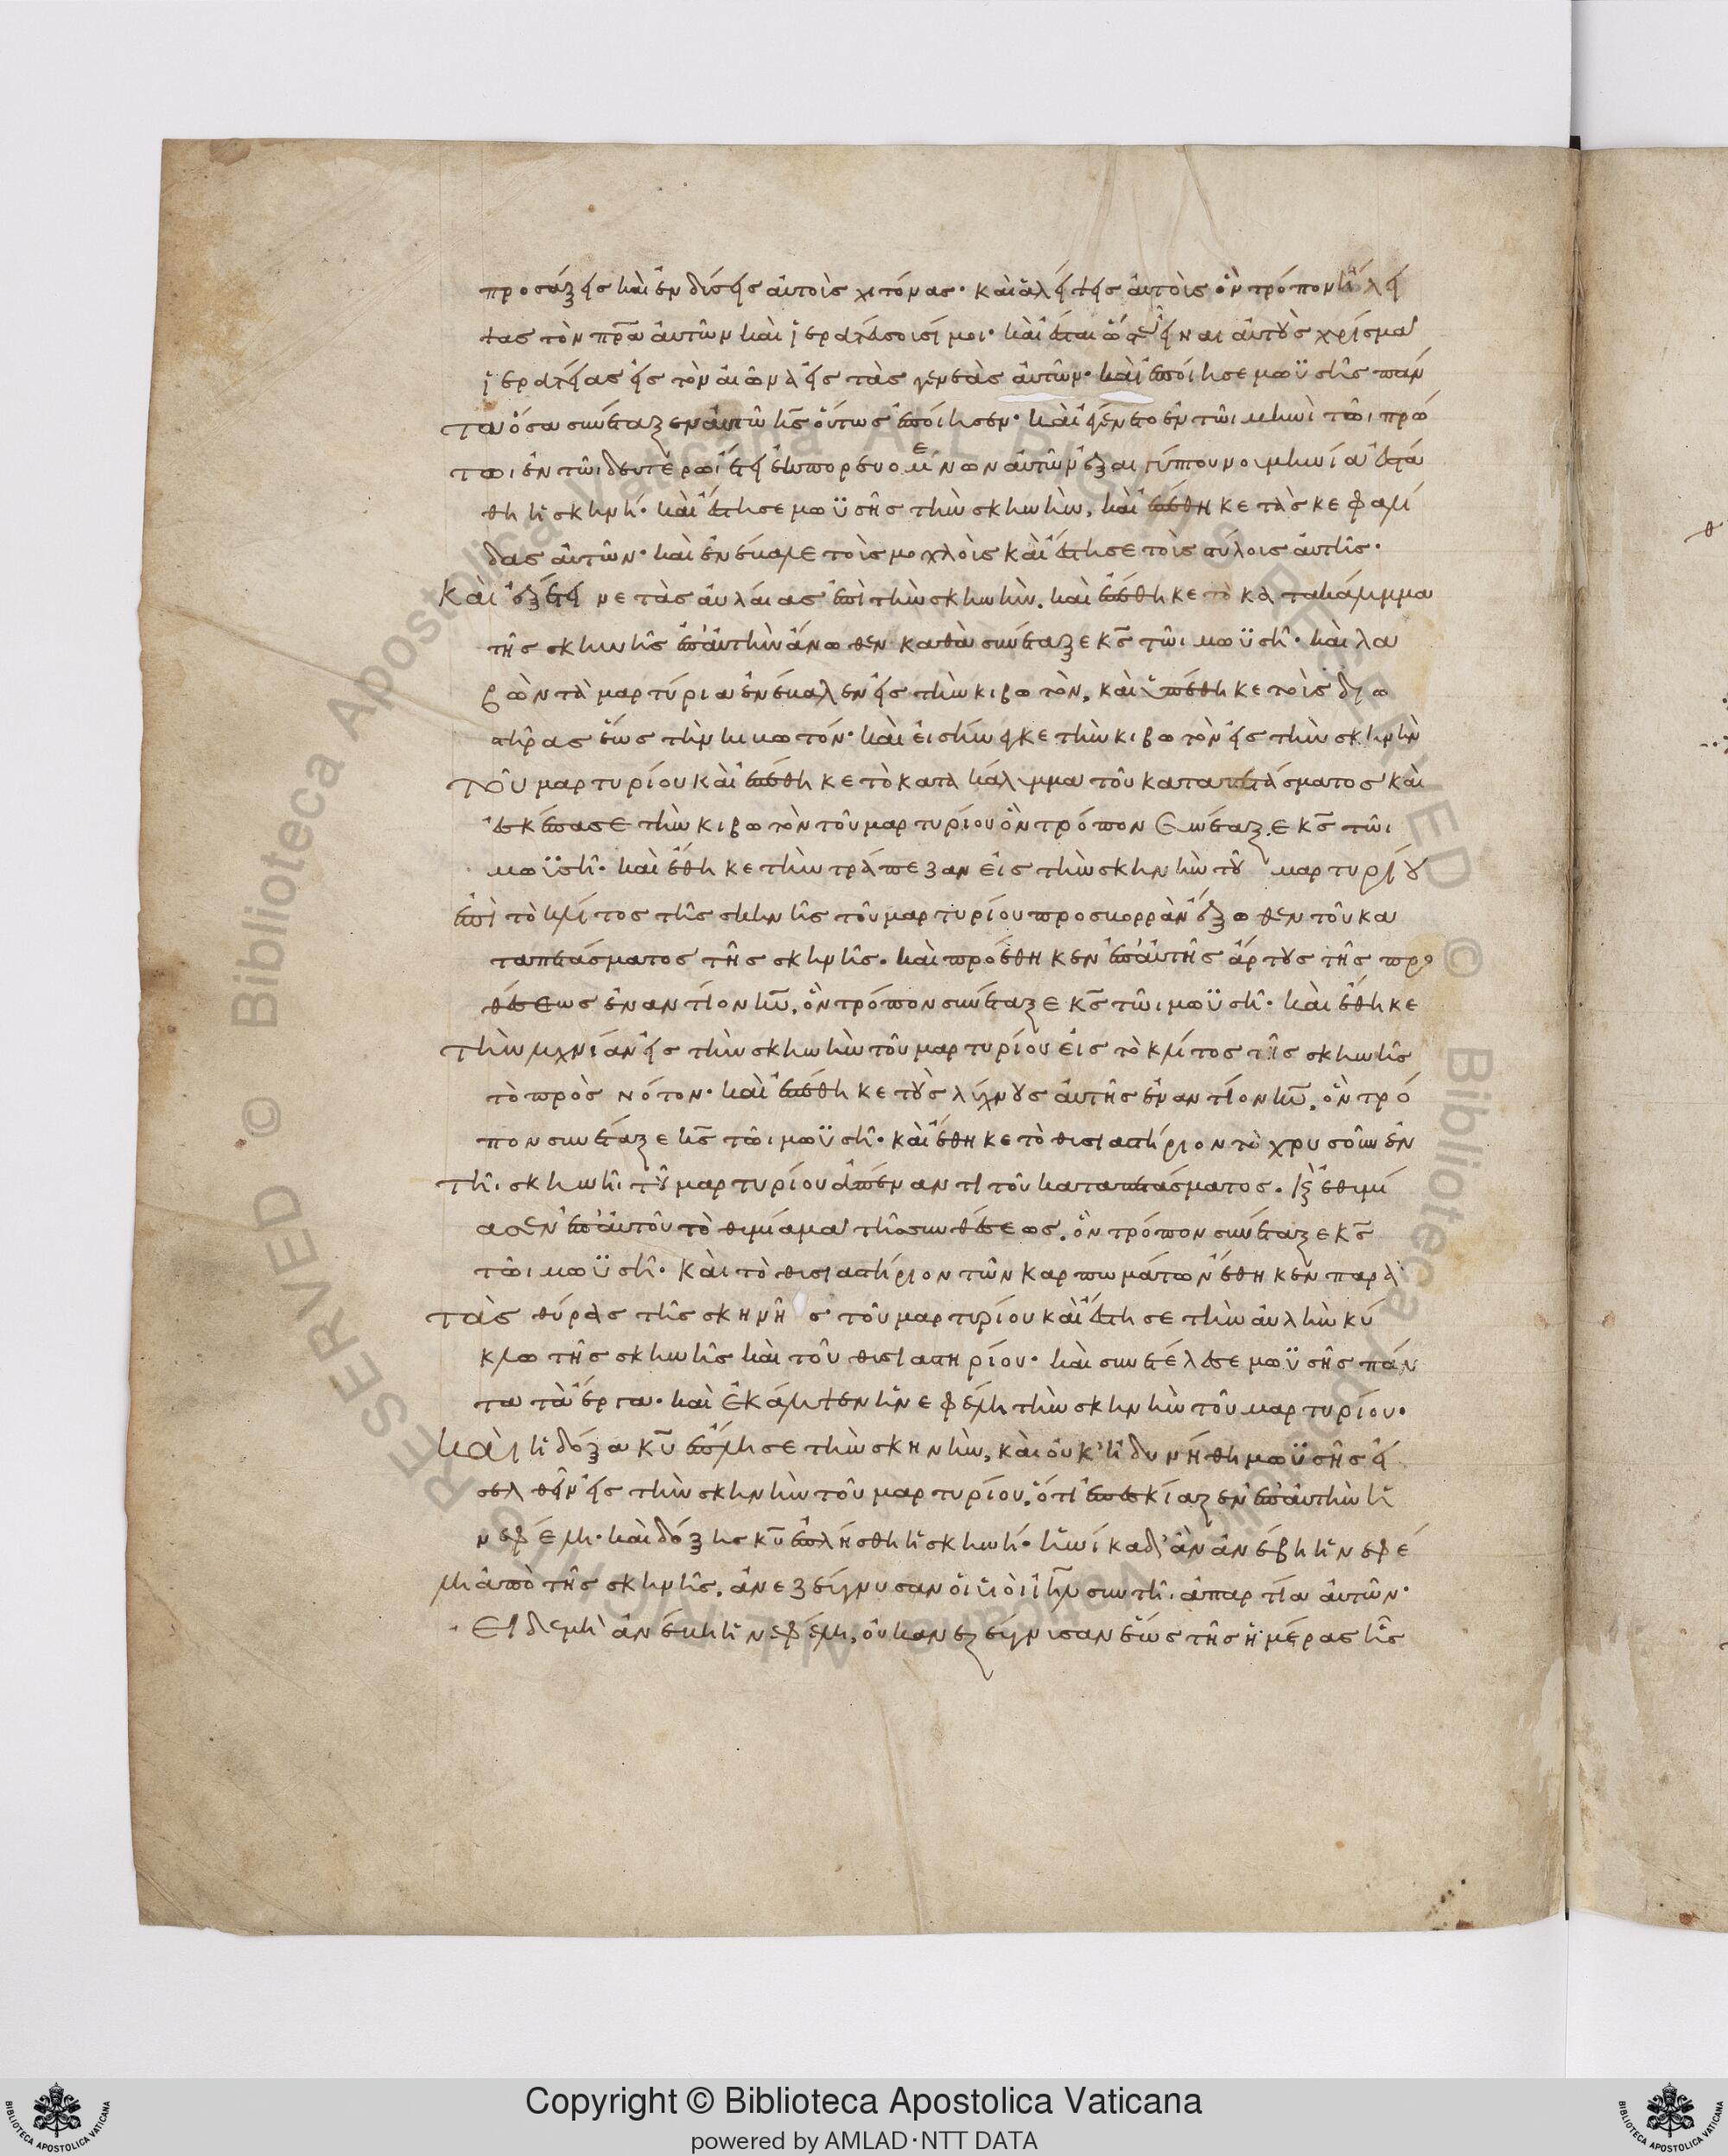 προσάξεις καὶ ἐνδύσεις αὐτοὺς χιτόνας· καὶ ἀλήψεις αὐτοὺς ὃν τρόπον ἤλει
ψας τὸν πρ̅α αὐτῶν καὶ ἱερατεύσουσί μοι· καὶ ἔσται ὥστε εἶναι αὐτοῖς χρίσμα
ἱερατείας εἰς τὸν αἰῶνα εἰς τὰς γενεὰς αὐτῶν· καὶ ἐποίησε μωϋσῆς πάν
τα ὅσα συνέταξεν αὐτῶ κ̅ς οὕτως ἐποίησεν· καὶ ἐγένετο ἐν τῶι μηνὶ τῶι πρώ
τωι ἐν τῶι δευτέρωι ἔτει ἐκπορευομένων αὐτῶν ἐξ αιγύπτου νουμηνία ἐστά
θη ἡ σκηνή· καὶ ἔστησε μωϋσῆς τὴν σκηνὴν, καὶ ἐπέθηκε τὰς κεφαλί
δας αὐτῶν· καὶ ἐνέκαλε τοὺς μοχλοὺς καὶ ἔστησε τοὺς στύλους αὐτῆς·
Καὶ ἐξέτεινε τὰς αὐλαίας ἐπὶ τὴν σκηνὴν. καὶ ἐπέθηκε τὸ κατακάλυμμα
τῆς σκηνῆς ἐπ' αὐτὴν ἄνωθεν καθὰ συνέταξε κ̅ς τῶι μωϋσῆ· καὶ λα
βὼν τὰ μαρτύρια ἐνέκαλεν εἰς τὴν κιβωτὸν, καὶ ὑπέθηκε τοὺς διω
στῆρας ἕως τὴν κιβωτόν· καὶ εἰσήνεγκε τὴν κιβωτὸν εἰς τὴν σκηνὴν
τοῦ μαρτυρίου καὶ ἐπέθηκε τὸ κατακάλυμμα τοῦ καταπετάσματος καὶ
ἐσκέπασε τὴν κιβωτὸν τοῦ μαρτυρίου ὃν τρόπον συνέταξε κ̅ς τῶι
μωϋσῆ· καὶ ἔθηκε τὴν τράπεζαν εἰς τὴν σκηνὴν τοῦ μαρτυρίου
ἐπὶ τὸ κλίτος τῆς σκηνῆς τοῦ μαρτυρίου προσκορρὰν ἔξωθεν τοῦ κα
ταπετάσματος τῆς σκηνῆς. καὶ προέθηκεν ἐπ' αὐτῆς ἄρτους τῆς προ
θέσεως ἐναντίον κ̅υ, ὃν τρόπον συνέταξε κ̅ς τῶι μωϋσῆ· καὶ ἔθηκε
τὴν λυχνίαν εἰς τὴν σκηνὴν τοῦ μαρτυρίου εἰς τὸ κλίτος τῆς σκηνῆς
τὸ πρὸς νότον· καὶ ἐπέθηκε τοὺς λύχνους αὐτῆς ἐναντίον κ̅υ, ὃν τρό
πον συνέταξε κ̅ς τῶι μωϋσῆ· καὶ ἔθηκε τὸ θυσιαστήριον τὸ χρυσοῦν ἐν
τῆι σκηνῆι τοῦ μαρτυρίου ἀπέναντι τοῦ καταπετάσματος. κ̀ ἐθυμί
ασεν ἐπ' αὐτοῦ τὸ θυμίαμα τῆς συνθέσεως. ὃν τρόπον συνέταξε κ̅ς
τῶι μωϋσῆ· Καὶ τὸ θυσιαστήριον τῶν καρπωμάτων ἔθηκεν παρὰ
τὰς θύρας τῆς σκηνῆς τοῦ μαρτυρίου καὶ ἔστησε τὴν αὐλὴν κύ
κλω τῆς σκηνῆς καὶ τοῦ θυσιαστηρίου· καὶ συνετέλεσε μωϋσῆς πάν
τα τὰ ἔργα· καὶ ἐκάλυψεν ἡ νεφέλη τὴν σκηνὴν τοῦ μαρτυρίου·
Καὶ ἡ δόξα κ̅υ ἐπλησε τὴν σκηνὴν, καὶ οὐκ ἠδυνήθη μωϋσῆς εἰ
σελθεῖν εἰς τὴν σκηνὴν τοῦ μαρτυρίου, ὅτι ἐπεσκίαζεν ἐπ' αὐτὴν ἡ
νεφέλη· καὶ δόξης κ̅υ ἐπλήσθη ἡ σκηνή· ἡνίκα δ' ἂν ἀνέβη ἡ νεφέ
λη ἀπὸ τῆς σκηνῆς, ἀνεζεύγνυσαν οἱ ὑιοὶ ι̅η̅λ συν τῆι ἀπαρτία αὐτῶν·
Εἰ δὲ μὴ ἀνέβη ἡ νεφέλη, οὐκ ανεζεύγνυσαν ἕως τῆς ἡμέρας ἧς
Copyright © Biblioteca Apostolica Vaticana
powered by AMLAD·NTT DATA